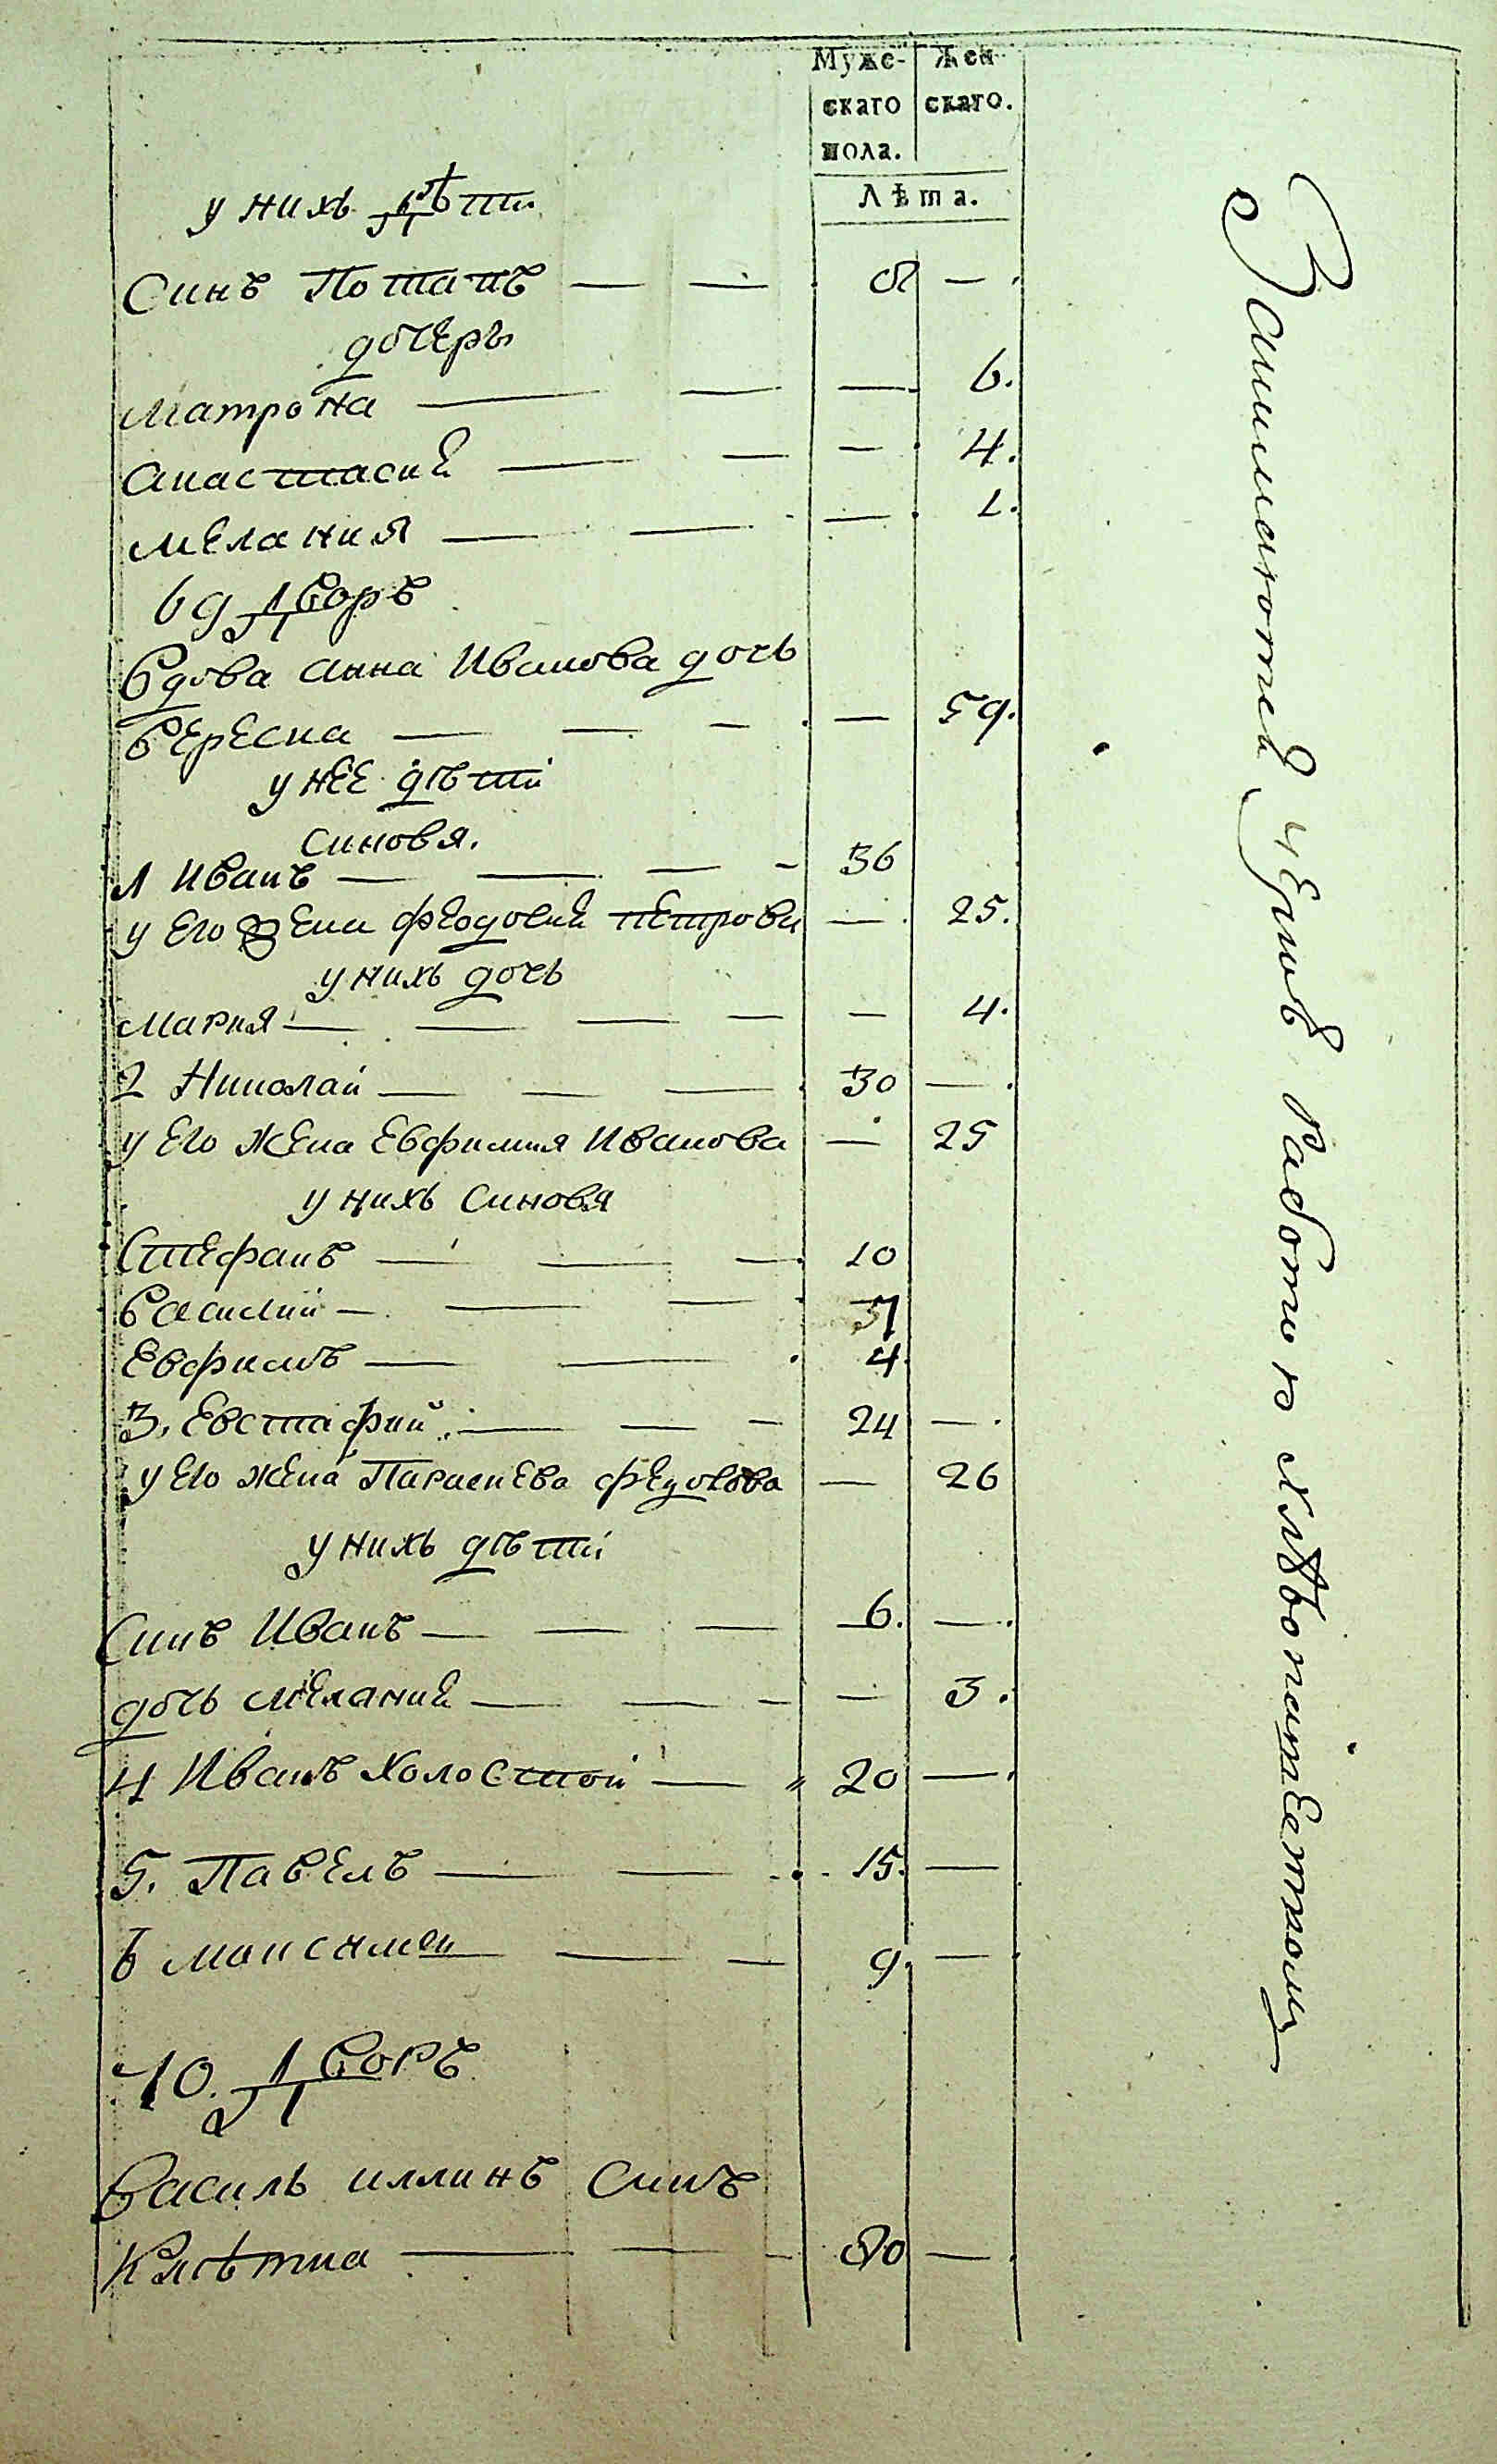 Муже-
скаго
пола.
Жен-
скаго.
Лѣта.
у нихъ дѣти
Синъ Потапъ — — 8 —.
дочеры
Матрона — — — 6.
Анастасия — — — 4.
Мелания — — — 1.
69 Дворъ
Вдова Анна Иванова дочь
Вересна — — — — 59.
у нее дѣти
Синовя.
1 Иванъ — — — - 36
у его жена Феодосия Петрова — 25.
у нихъ дочь
Мария — — — — — 4.
2 Николай — — — 30 —.
у его жена Евфимия Иванова — 25
у нихъ Синовя
Стефанъ — — — 10
Василий — — —
Евфимъ — — 4
3. Евстафий — — — 24 —.
у его жена Параскева Федо — 26
у нихъ дѣти
Синъ Иванъ — — — 6. —.
дочь Мелания — — — — 3.
4 Иванъ холостой — 20 —.
5. Павелъ — — 15. —
6 Максимъ — — 9. —
70. Дворъ
Василь иллинъ Синъ
Клѣтка — — - 80 —.
Занимаются членъ работою хлѣбопашественною